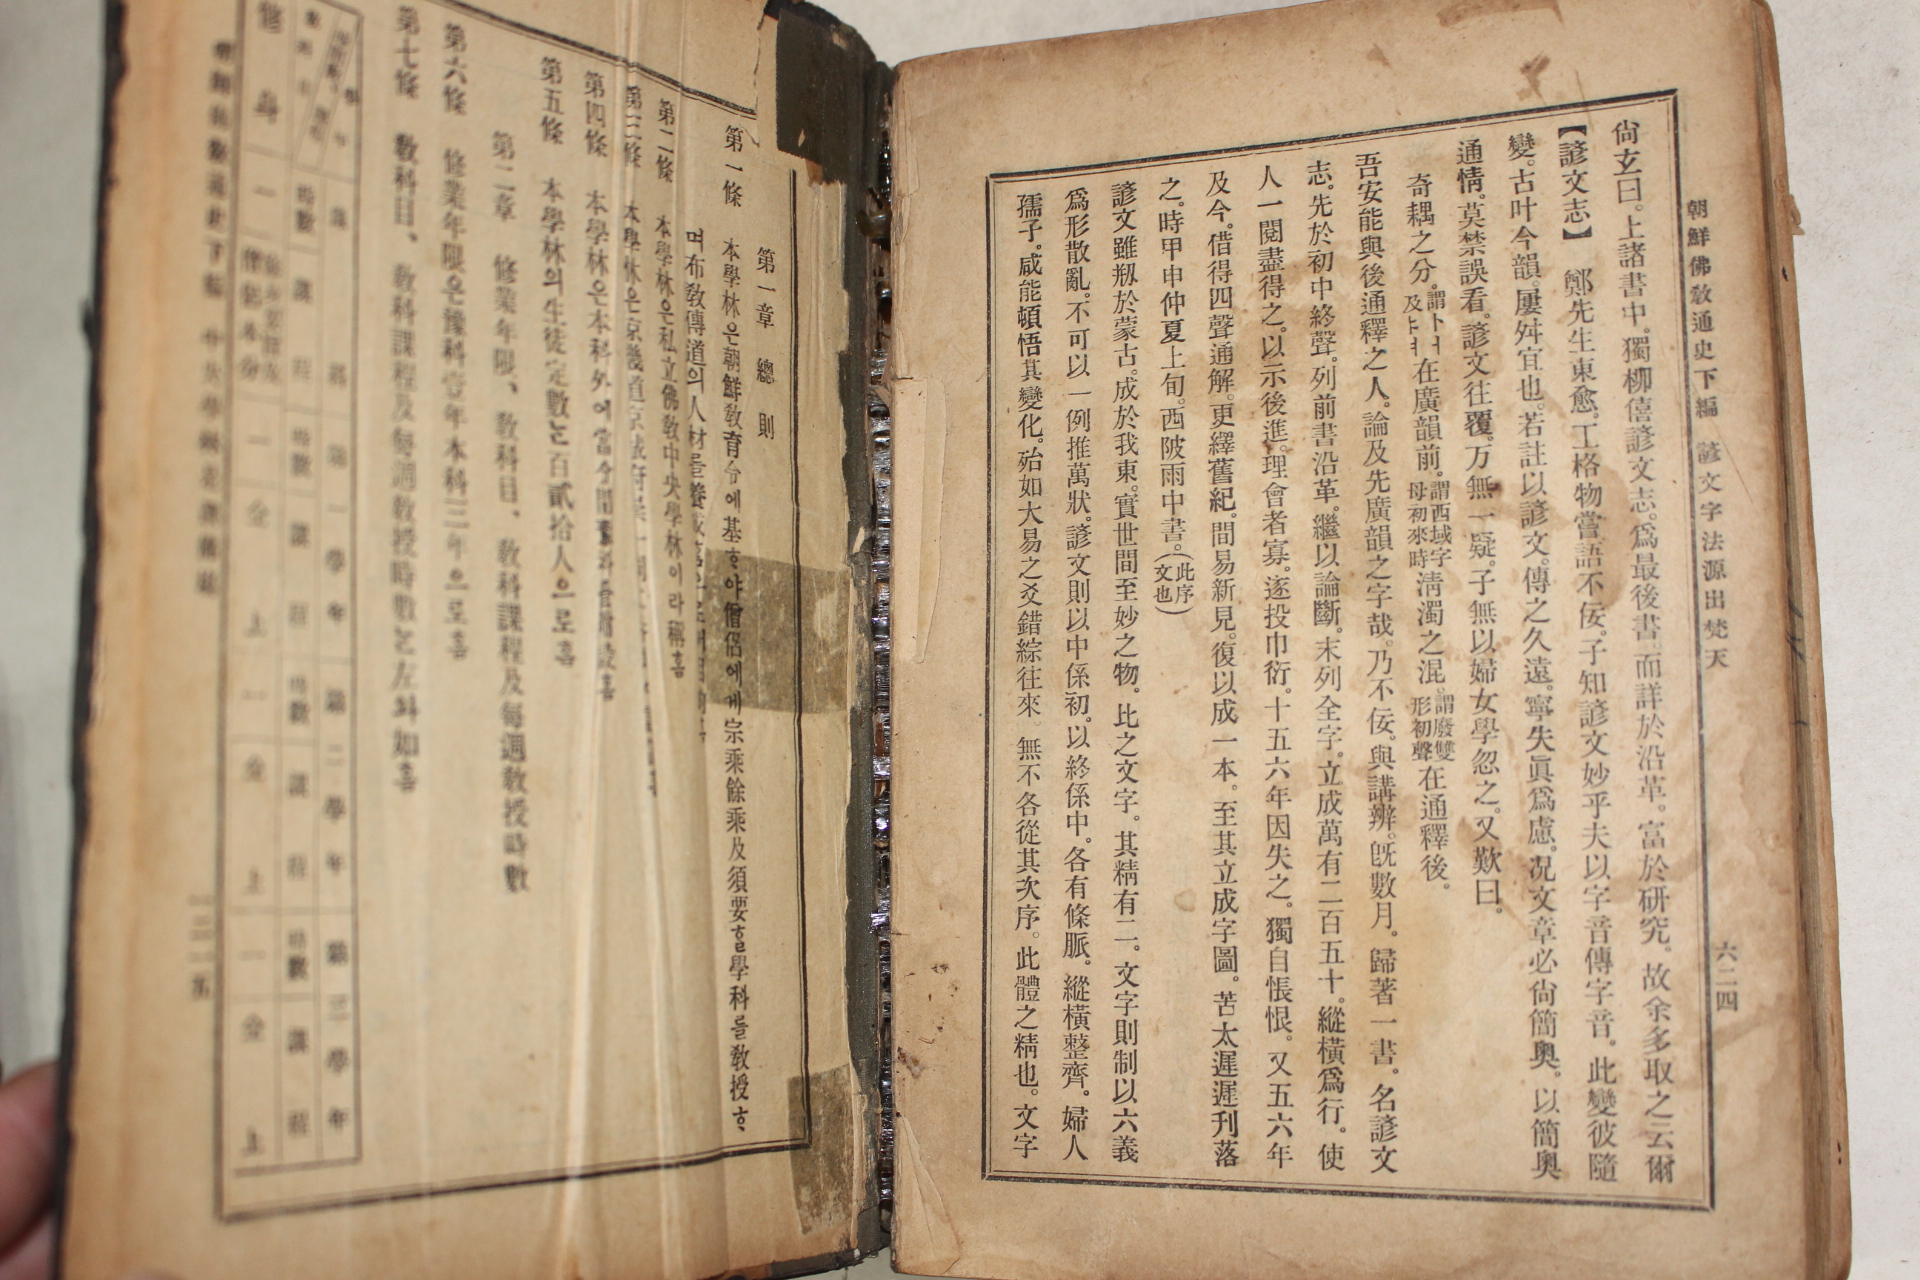 朝鮮佛敎通史下編 諺文字法源出梵天
六二四
尙玄曰。上諸書中。獨柳僖諺文志。爲最後書。而詳於沿革。富於硏究。故余多取之云爾
【諺文志】 鄭先生東愈。工格物嘗語不佞。子知諺文妙乎夫以字音傳字音。此變彼隨
變。古叶今韻。屢舛宜也。若註以諺文。傳之久遠。寧失眞爲慮。况文章必尙簡奧。以簡奧
通情。莫禁誤看。諺文往覆。万無一疑。子無以婦女學忽之。又歎曰。
奇耦之分。謂ㅏㅓ及ㅑㅕ在廣韻前。謂西域字母初來時淸濁之混。謂廢雙形初聲在通釋後。
吾安能與後通釋之人。論及先廣韻之字哉。乃不佞。與講辨。旣數月。歸著一書。名諺文
志。先於初中終聲。列前書沿革。繼以論斷。末列全字。立成萬有二百五十。縱橫爲行。使
人一閱盡得之。以示後進。理會者寡。遂投巾衍。十五六年因失之。獨自悵恨。又五六年
及今。借得四聲通解。更繹舊紀。間易新見。復以成一本。至其立成字圖。苦太遲遲刋落
之。時甲申仲夏上旬。西陂雨中書。(此序文也)
諺文雖刱於蒙古。成於我東。實世間至妙之物。比之文字。其精有二。文字則制以六義
爲形散亂。不可以一例推萬狀。諺文則以中係初。以終係中。各有條脈。縱橫整齊。婦人
孺子。咸能頓悟其變化。殆如大易之爻錯綜往來。無不各從其次序。此體之精也。文字
第一章 總則
第一條 本學林은朝鮮敎育令에基ᄒᆞ야僧侶에게宗乘餘乘及須要ᄒᆞᆯ學科를敎授ᄒᆞ
며布敎傳道의人材를養成
第二條 本學林은私立佛敎中央學林이라稱홈
第三條 本學林은京畿道京城府
第四條 本學林은本科外에當分間豫科를附設홈
第五條 本學林의生徒定數는百貳拾人으로홈
第二章 修業年限、敎科目、敎科課程及每週敎授時數
第六條 修業年限은豫科壹年本科三年으로홈
第七條 敎科目、敎科課程及每週敎授時數는左와如홈
第一學年 第二學年 第三學年
時數 課程 時數 課程 時數 課程
修身 一 一 仝上 一 仝上